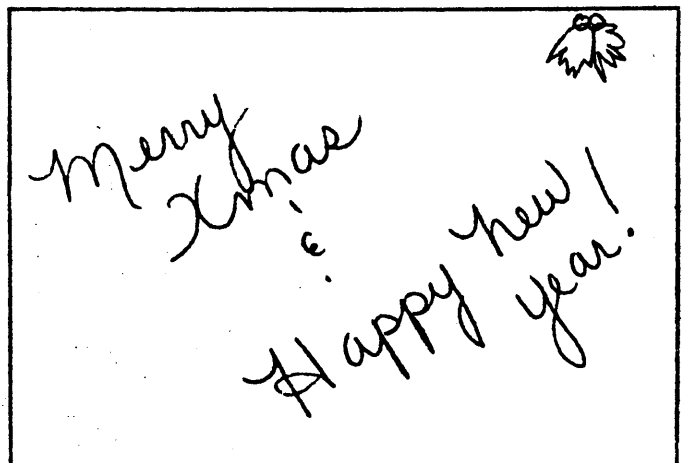 Merry
Xmas
&
Happy new
year!